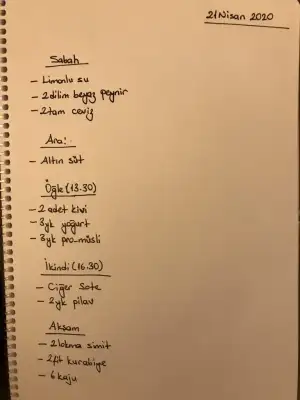 21 Nisan 2020
Sabah
- Limonlu su
- 2 dilim beyaz peynir
- 2 tam ceviz
Ara:
- Altın süt
Öğle (13.30)
- 2 adet kivi
- 3 yk yoğurt
- 3 yk pro-müsli
İkindi (16.30)
- Ciğer Sote
- 2 yk pilav
Akşam
- 2 lokma simit
- 2 fit kurabiye
- 6 kaju